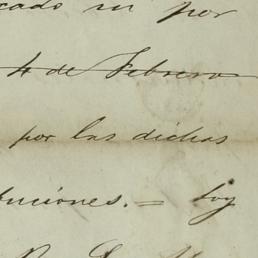 cado en por
4 de Febrero
por las dichas
uciones. = Soy